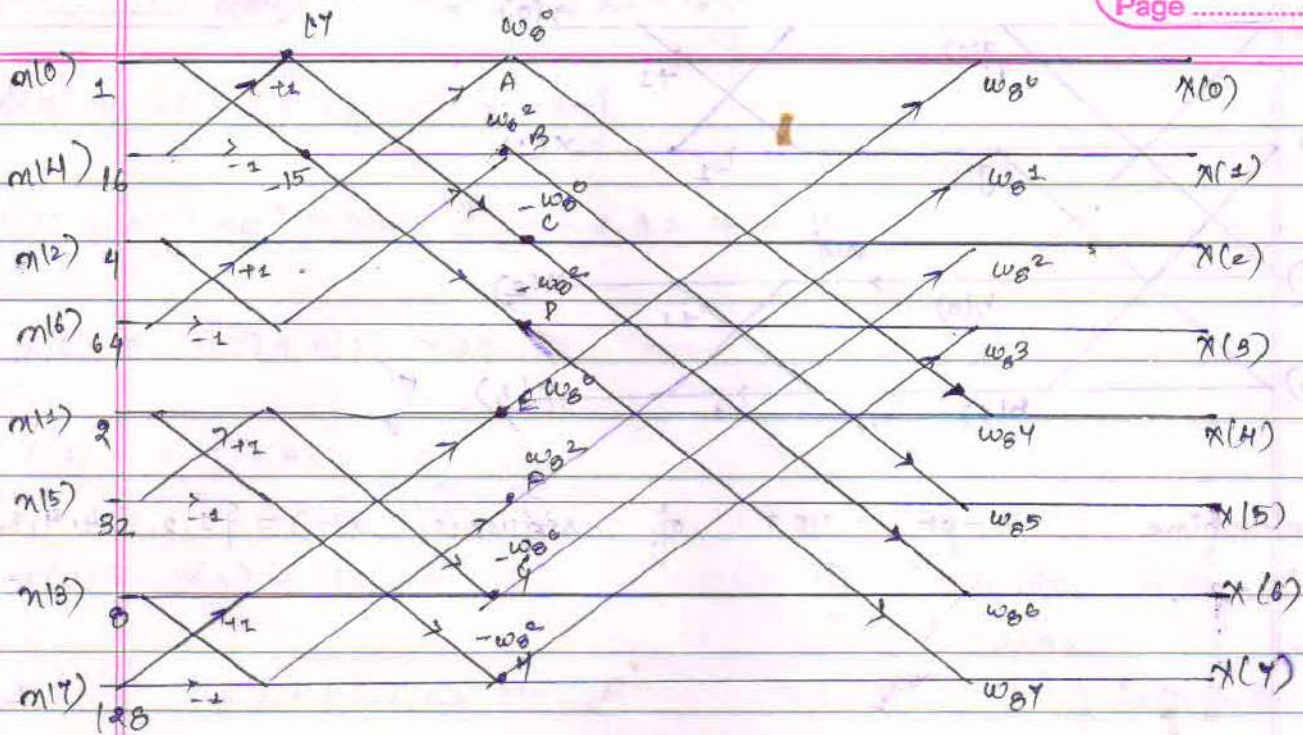 Page ..............
17 w8^0
x(0) 1 +1 A w8^0 X(0)
w8^2
B
x(4) 16 -1 -15 w8^1 X(1)
-w8^0
C
x(2) 4 +1 w8^2 X(2)
-w8^2
D
x(6) 64 -1 w8^3 X(3)
E w8^0
x(1) 2 +1 w8^4 X(4)
w8^2
F
x(5) 32 -1 w8^5 X(5)
-w8^0
G
x(3) 8 +1 w8^6 X(6)
-w8^2
H
x(7) 128 -1 w8^7 X(7)